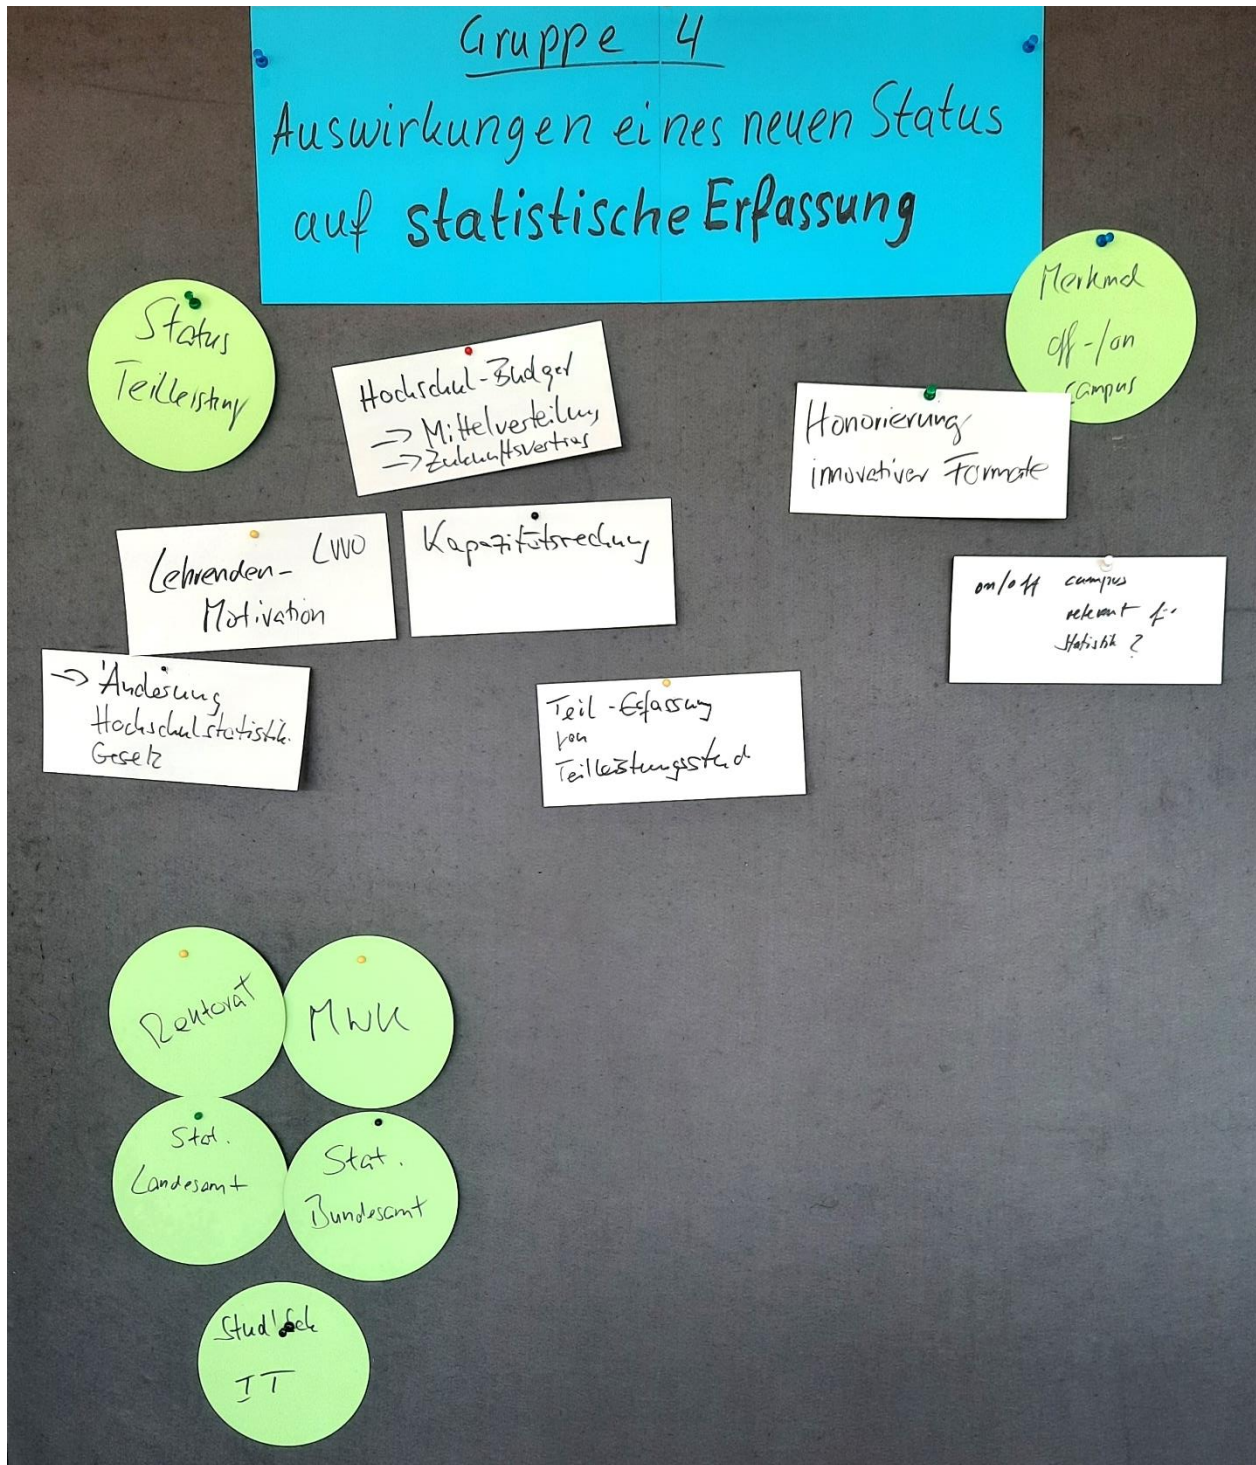 Gruppe 4
Auswirkungen eines neuen Status
auf statistische Erfassung
Status
Teilleistung
Hochschul-Budget
→ Mittelverteilung
→ Zukunftsvertrag
Merkmal
off-/on
campus
Honorierung
innovativer Formate
Lehrenden- LVVO
Motivation
Kapazitätsrechnung
on/off campus
relevant für
Statistik?
→ Änderung
Hochschulstatistik.
Gesetz
Teil-Erfassung
von
Teilleistungsstud
Rektorat
MWK
Stat.
Landesamt
Stat.
Bundesamt
Stud'Sek
IT